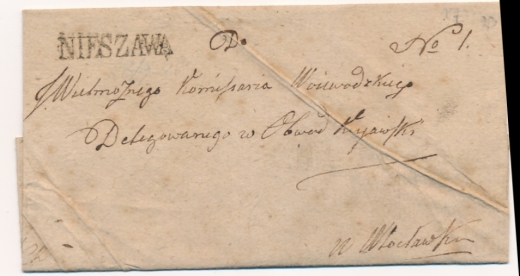 NIESZAWA Do No 1.
JWielmożnego Komissarza Woiewodzkiego
Delegowanego w Obwod Kujawski
w Włocławku